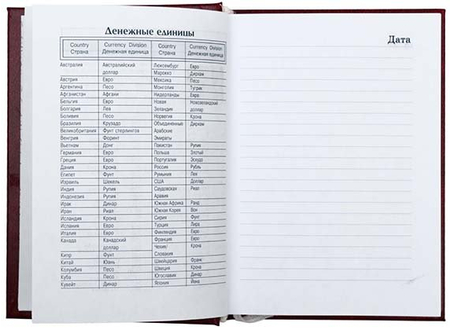 Денежные единицы
Country Currency Division Country Currency Division
Страна Денежная единица Страна Денежная единица
Австралия Австралийский Люксембург Евро
доллар Марокко Дирхам
Австрия Евро Мексика Песо
Аргентина Песо Монголия Тугрик
Афганистан Афгани Нидерланды Евро
Бельгия Евро Новая Новозеландский
Болгария Лев Зеландия доллар
Боливия Песо Норвегия Крона
Бразилия Крузадо Объединенные Дирхам
Великобритания Фунт стерлингов Арабские
Венгрия Форинт Эмираты
Вьетнам Донг Пакистан Рупия
Германия Евро Польша Злотый
Греция Евро Португалия Эскудо
Дания Крона Россия Рубль
Египет Фунт Румыния Лев
Израиль Шекель США Доллар
Индия Рупия Саудовская Риал
Индонезия Рупия Аравия
Ирак Динар Южная Африка Ранд
Иран Риал Южная Корея Вон
Исландия Крона Сирия Фунт
Испания Евро Турция Лира
Италия Евро Финляндия Евро
Канада Канадский Франция Евро
доллар Чехия/ Крона
Кипр Фунт Словакия
Китай Юань Швейцария Франк
Колумбия Песо Швеция Крона
Куба Песо Югославия Динар
Кувейт Динар Япония Йена
Дата